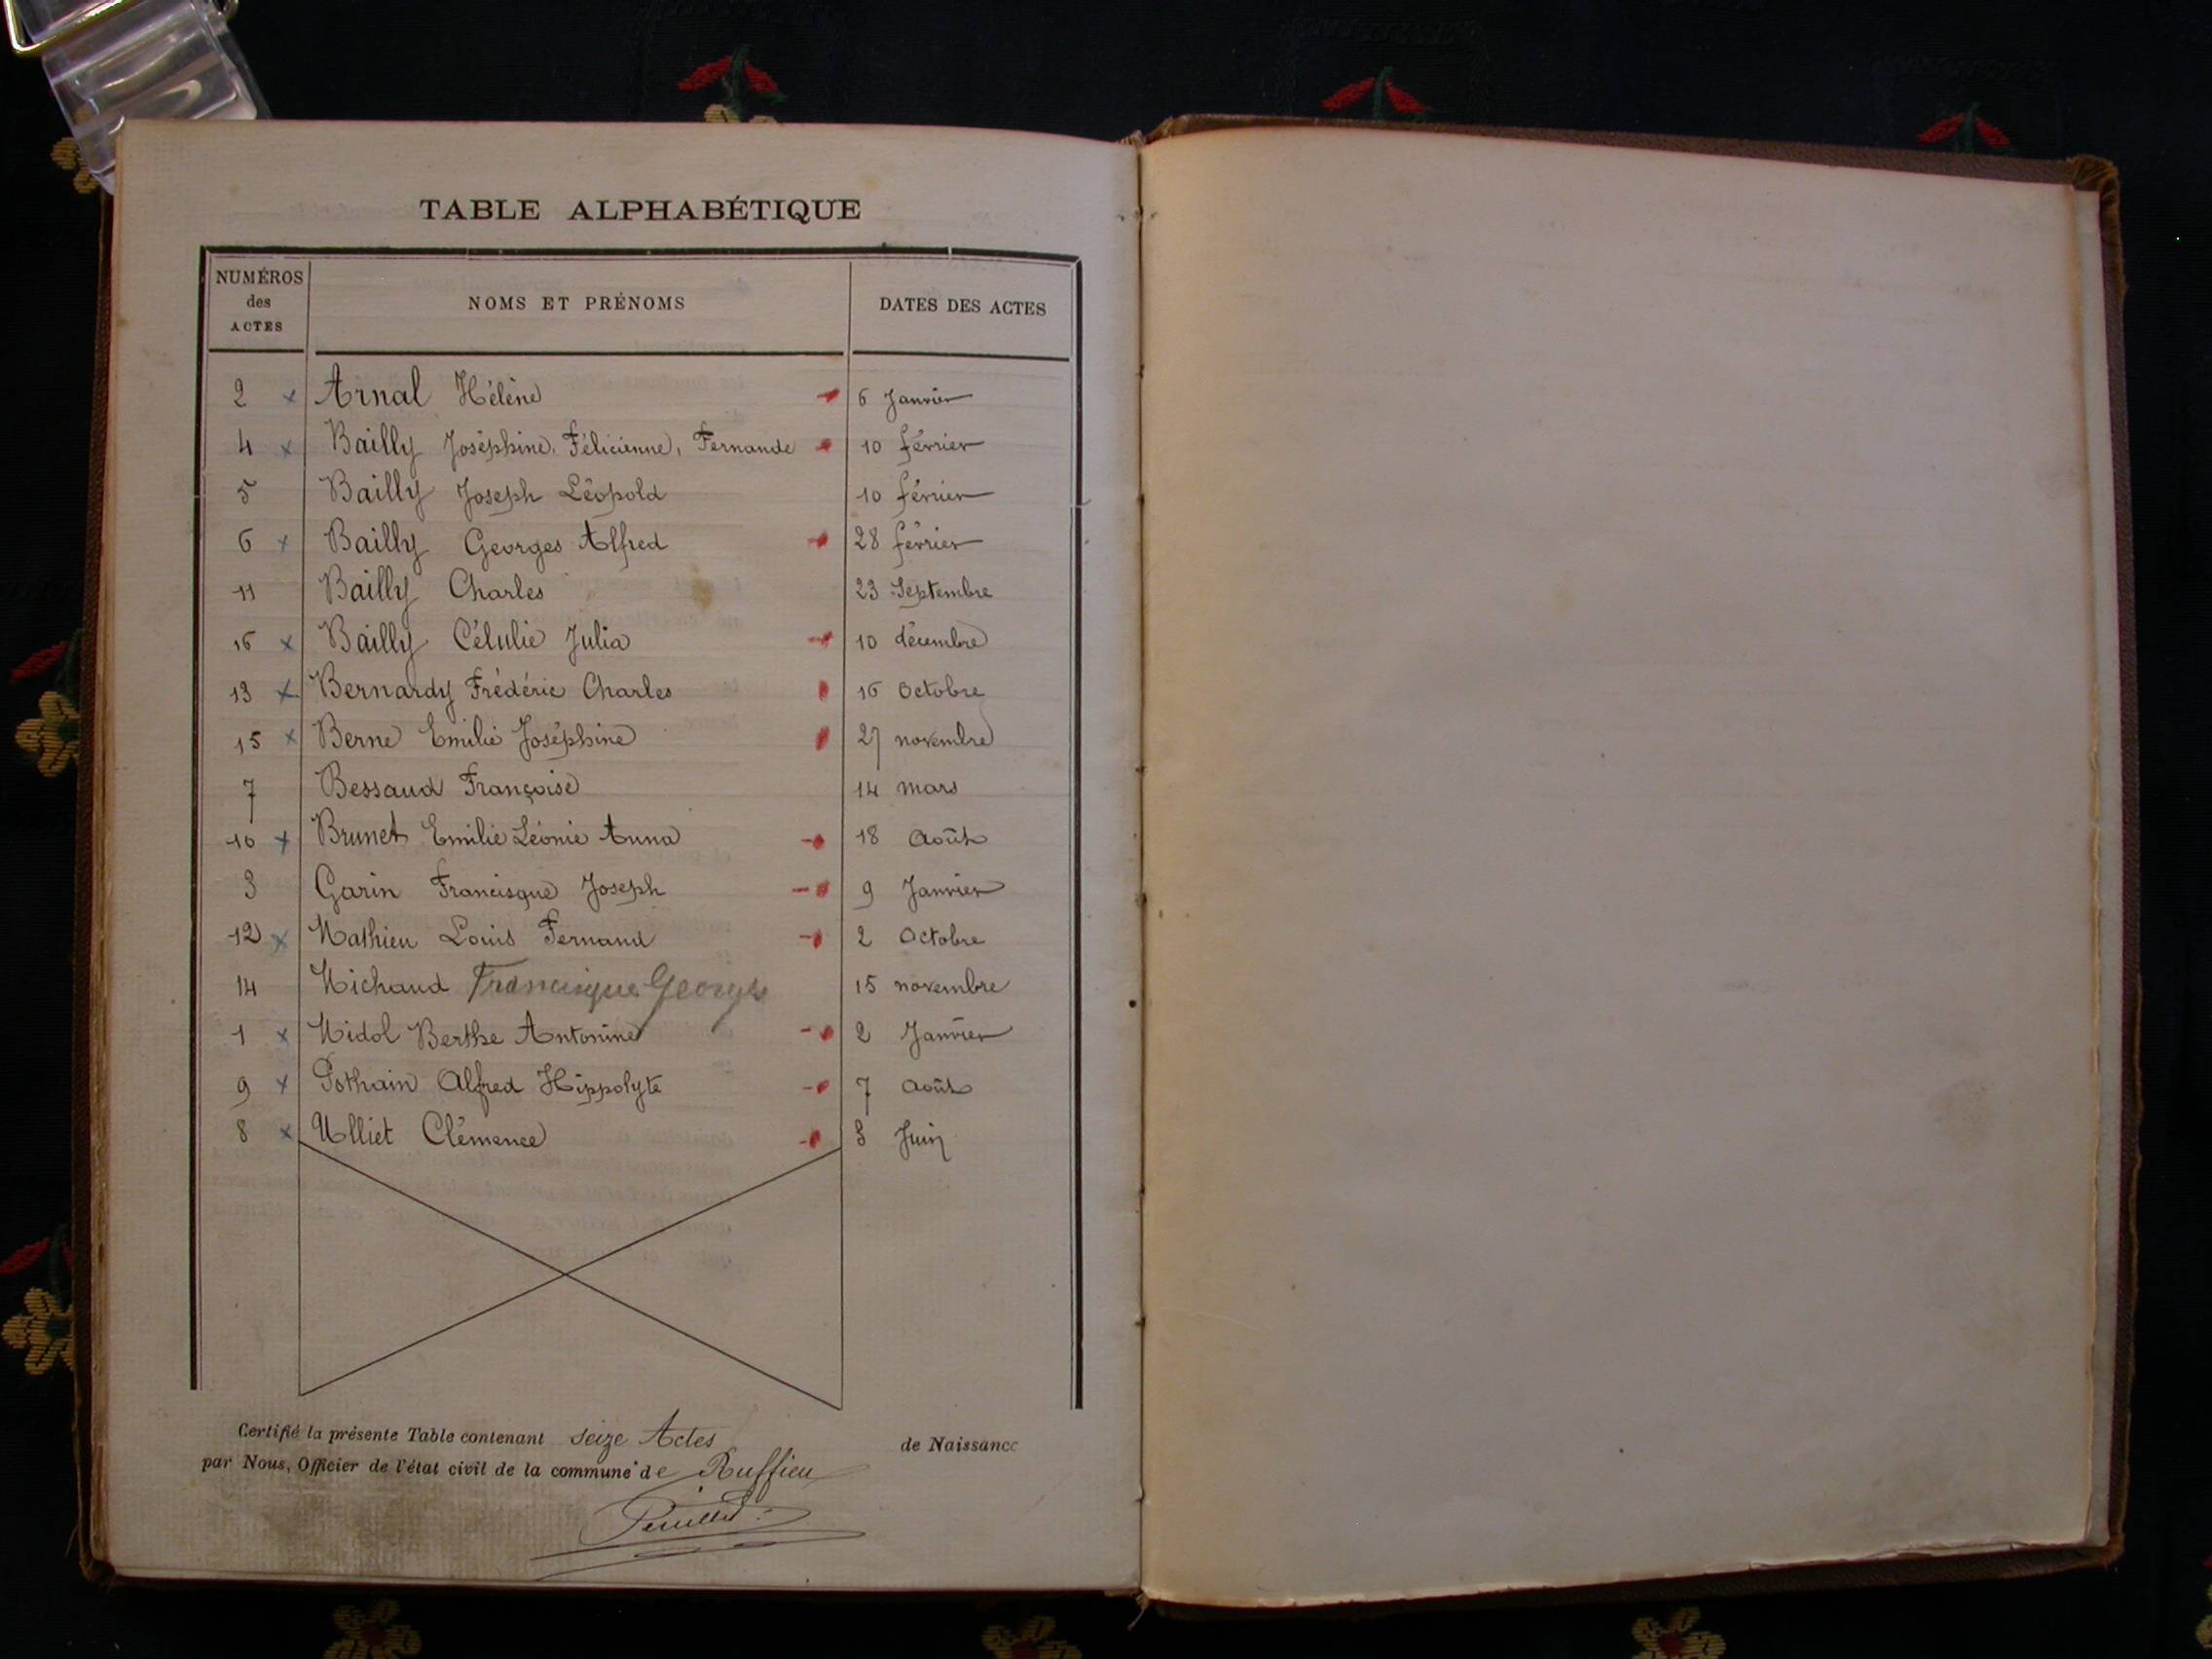 TABLE ALPHABÉTIQUE
NUMÉROS des ACTES NOMS ET PRÉNOMS DATES DES ACTES
2 x Arnal Hélène 6 Janvier
4 x Bailly Joséphine, Félicienne, Fernande 10 février
5 Bailly Joseph Léopold 10 février
6 x Bailly Georges Alfred 28 février
11 Bailly Charles 23 Septembre
16 x Bailly Célulie Julia 10 décembre
13 x Bernardy Frédéric Charles 16 Octobre
15 x Berne Emilie Joséphine 27 novembre
7 Bessaud Françoise 14 mars
10 x Brunet Emilie Léonie Anna 18 Août
3 Garin Francisque Joseph 9 Janvier
12 x Mathieu Louis Fernand 2 Octobre
14 Michaud Francisque Georges 15 novembre
1 x Midol Berthe Antonine 2 Janvier
9 x Pothain Alfred Hippolyte 7 Août
8 x Ulliet Clémence 8 Juin
Certifié la présente Table contenant seize Actes de Naissance
par Nous, Officier de l'état civil de la commune de Ruffieu